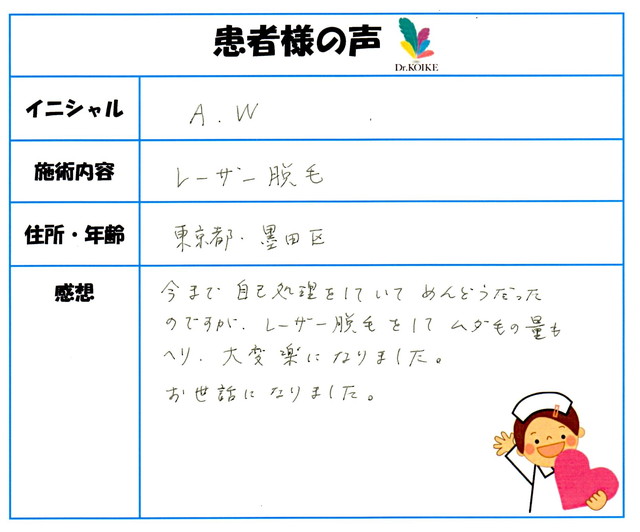 患者様の声
Dr.KOIKE
イニシャル
A. W
施術内容
レーザー脱毛
住所・年齢
東京都・墨田区
感想
今まで自己処理をしていて めんどうだった
のですが、レーザー脱毛をして ムダ毛の量も
へり、大変楽になりました。
お世話になりました。